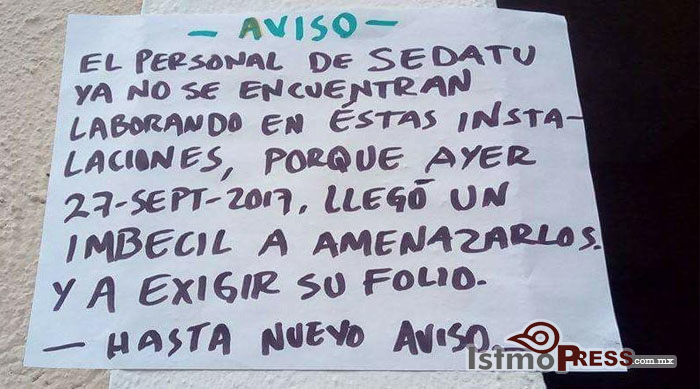 - AVISO -
EL PERSONAL DE SEDATU
YA NO SE ENCUENTRAN
LABORANDO EN ÉSTAS INSTA-
LACIONES, PORQUE AYER
27-SEPT-2017, LLEGÓ UN
IMBECIL A AMENAZARLOS.
Y A EXIGIR SU FOLIO.
- HASTA NUEVO AVISO. -
ISTMOPRESS.com.mx